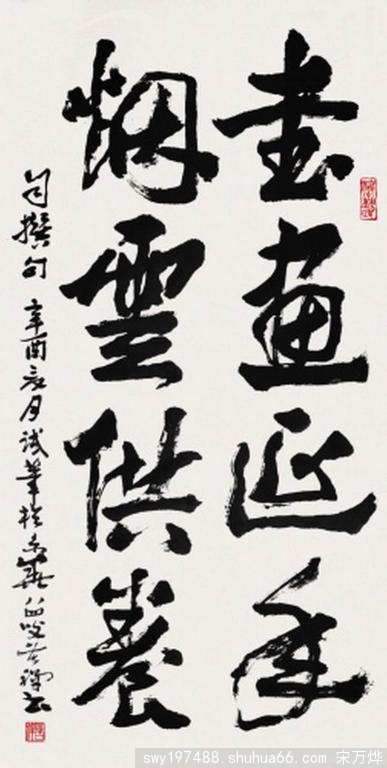 書畫延年
烟雲供養
自撰句 辛酉 月 試筆於 書
swy197488.shuhua66.com 宋万烨